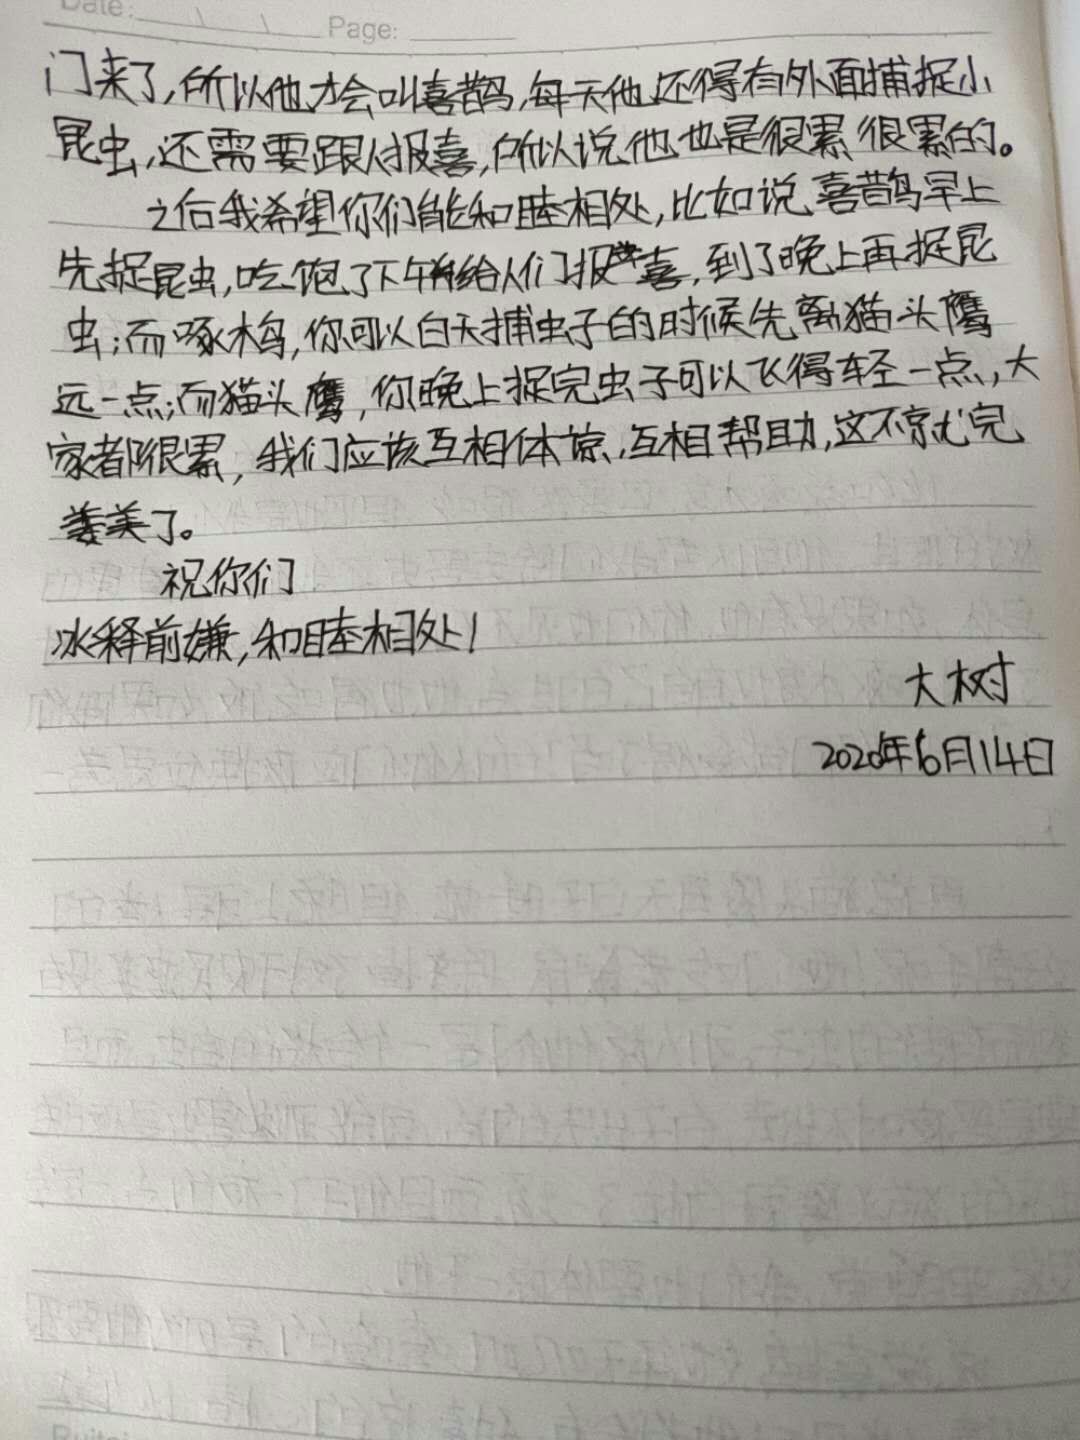 Date:
Page:
门来了,所以他才会叫喜鹊,每天他还得有外面捕捉小
昆虫,还需要跟人报喜,所以说他也是很累很累的。
之后我希望你们能和睦相处,比如说喜鹊早上
先捉昆虫,吃饱了下午给人们报喜,到了晚上再捉昆
虫;而啄木鸟,你可以白天捕虫子的时候先离猫头鹰
远一点;而猫头鹰,你晚上捉完虫子可以飞得轻一点,大
家都很累,我们应该互相体谅,互相帮助,这不就完
美了。
祝你们
冰释前嫌,和睦相处!
大树
2020年6月14日